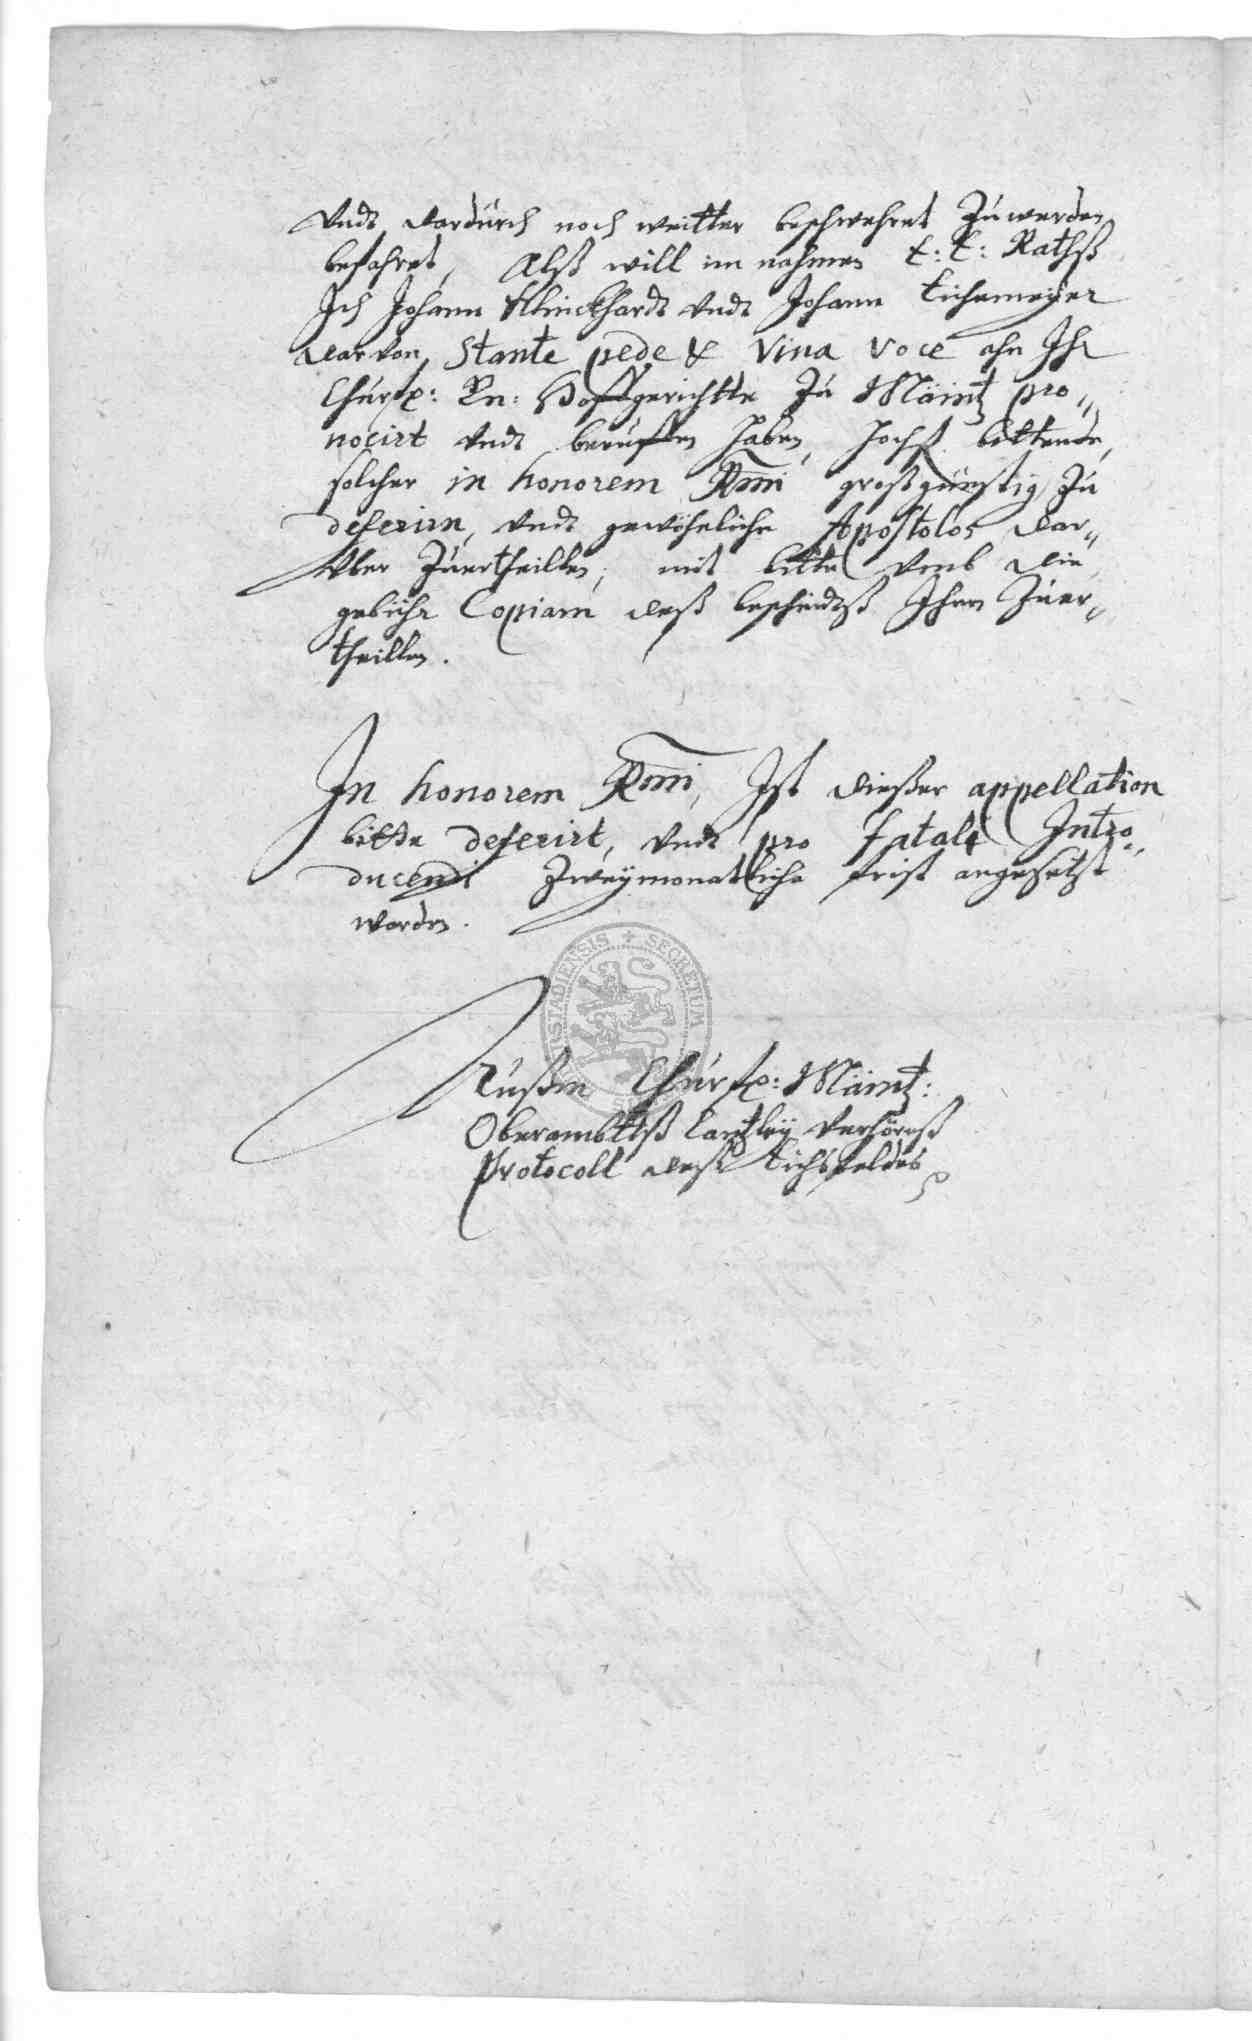 Vndt dardurch noch weitter beschwehret zu werden
befahret, Alß will im nahmen E: E: Rathß
Ich Johann Klinckhardt vndt Johann Eichemeyer
darvon, Stante pede & viva voce ahn Ihr
Churfl: Gn: Hoffgerichtte zu Mäintz pro„
vocirt vndt beruffen haben, höchst bittende,
solcher in honorem Rmi großgünstig zu
deferirn, vndt gewöhnliche Apostolos dar„
über zuertheillen, mit bitte vmb die
gebühr Copiam deß bescheidtß Ihnen zuer„
theillen.
In honorem Rmi, Ist dießer appellation
bitte deferirt, vndt pro fatali Intro„
ducendi zweymonatliche frist angesetzt
worden.
SECRETUM
Außm Churfl: Mäintz:
Oberambttß Cantzley Verhörß
Protocoll deß Eichsfeldes